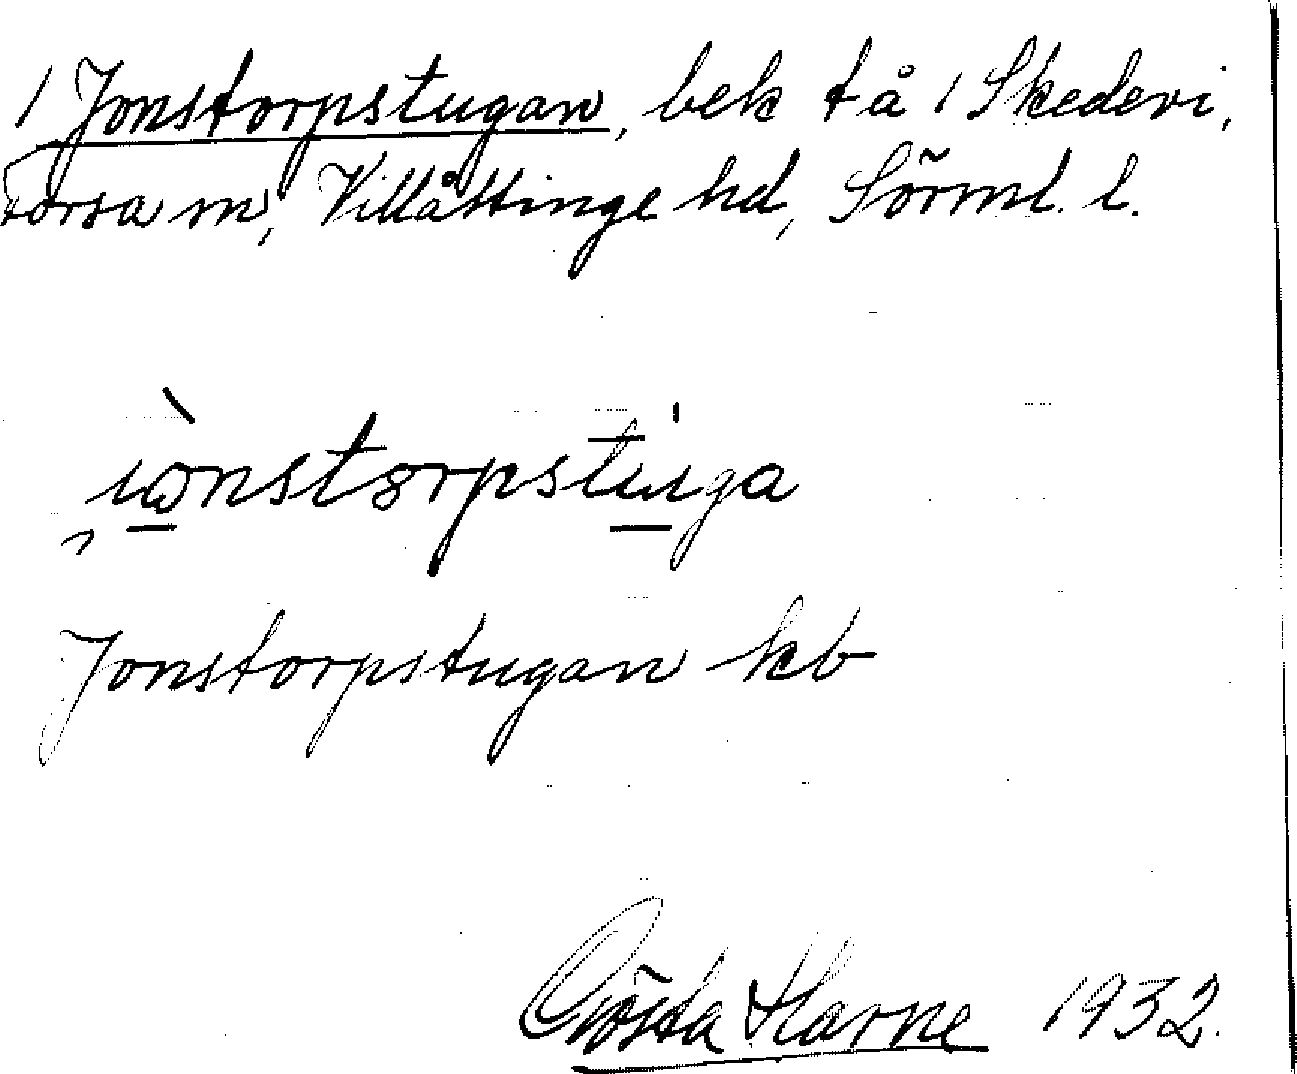 / Jonstorpstugan, bek t å / Skedevi,
Forsa sn, Villåttinge hd, Sörml. l.
Jonstorpstugan kb
Gösta Harne 1932.